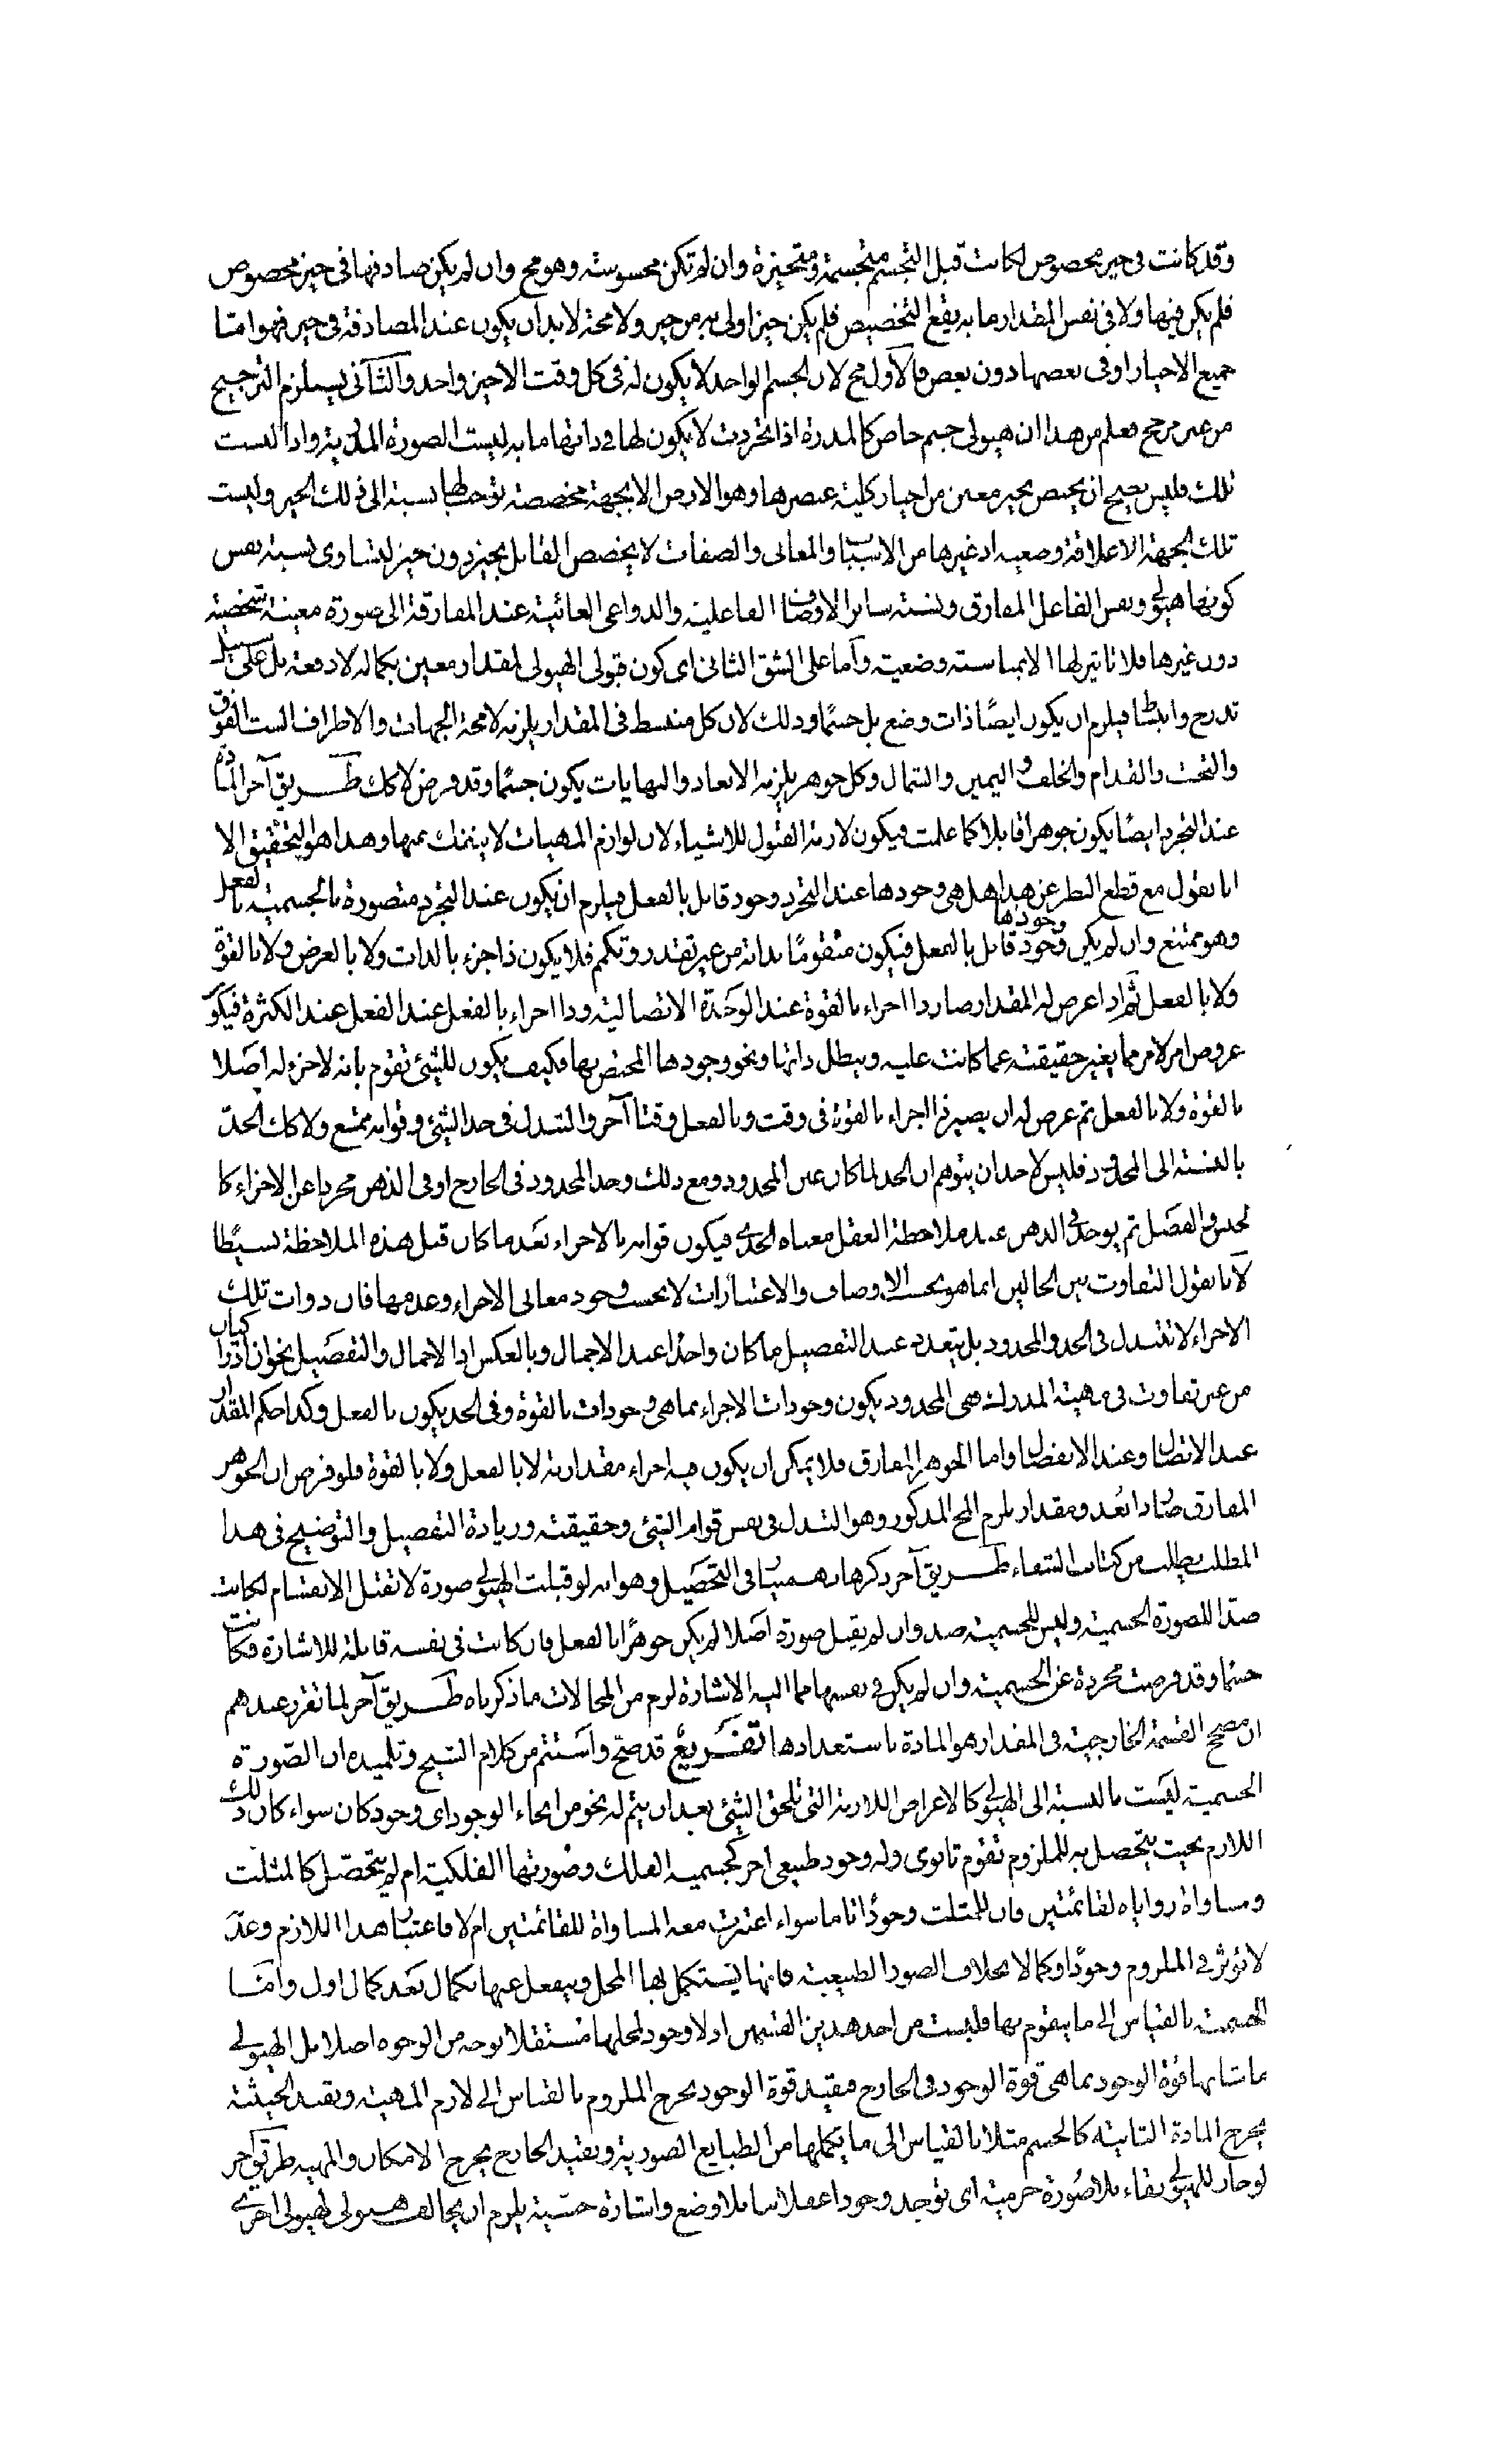 وقد كانت فى حيز مخصوص لكانت قبل التجسم متجسمة ومتحيزة وان لم تكن محسوسته وهو مح وان لم يكن صادفها فى حيز مخصوص
فلم يكن فيها ولا فى نفس المقدار ما به يقع التخصيص فلم يكن حيز اولى به من حيز ولا محة لا بد ان يكون عند المصادفة فى حيز فهو امتا
جميع الاحياز او فى بعضها دون بعض فالاول مح لان الجسم الواحد لا يكون له فى كل وقت الا حيز واحد والثانى يستلزم الترجيح
من غير مرجح فعلم من هذا ان هيولى جسم خاص كالمدرة اذا تجردت لا يكون لها فى ذاتها ما به لبست الصورة المدرية واذا لبست
تلك فليس يصح ان يختص بحيز معين من احياز كلية عنصرها وهو الارض الا بجهة مخصصة توجب لها نسبة الى ذلك الحيز وليست
تلك الجهة الا علاقة وضعية اذ غيرها من الاسباب والمعانى والصفات لا يخصص القابل بحيز دون حيز لتساوى نسبة نفس
كونها هيولى ونفس الفاعل المفارق ونسبة ساير الاوضاف الفاعلية والدواعى الغائية عند المفارقة الى صورة معينة شخصية
دون غيرها فلا تاثير لها الا بمناسبة وضعية وأما على الشق الثانى اى كون قبول الهيولى لمقدار معين بكماله لا دفعة بل على سبيل
تدرج وانبساط فيلزم ان يكون ايضًا ذات وضع بل جسمًا وذلك لان كل منبسط فى المقدار يلزمه لا محة الجهات والاطراف الست الفوق
والتحت والقدام والخلف واليمين والشمال وكل جوهر يلزمه الابعاد والنهايات يكون جسمًا وقد فرض لا كك طريق آخر المادة
عند التجرد ايضًا يكون جوهرا قابلا كما علمت فيكون لازمه القبول للاشياء لان لوازم المهيات لا ينفك عنها وهذا هو التحقيق الا
انا نقول مع قطع النظر عن هذا هل هى وجودها عند التجرد وجود قابل بالفعل فيلزم ان يكون عند التجرد متصورة بالجسمية بالفعل
وهو ممتنع وان لم يكن وجودها وجود قابل بالفعل فيكون متقومًا بذاته من غير تقدر وتكمم فلا يكون ذا جزء بالذات ولا بالعرض ولا بالقوة
ولا بالفعل ثم اذا عرض له المقدار صار ذا اجزاء بالقوة عند الوحدة الاتصالية وذا اجزاء بالفعل عند الفعل عند الكثرة فيكو
عروض امر لامر مما يغير حقيقته عما كانت عليه ويبطل ذاتها ونحو وجودها المختص بها فكيف يكون للشئ تقوم بانه لا جزء له اصلا
بالقوة ولا بالفعل ثم عرض له ان يصير ذا اجزاء بالقوة فى وقت وبالفعل وقتا آخر والتبدل فى حد الشئ وقوامه ممتنع ولا كك الحدّ
بالنسبة الى المحدود فليس لاحد ان يتوهم ان الحد لما كان عين المحدود ومع ذلك وجد المحدود فى الخارج او فى الذهن مجردا عن الاجزاء كا
لجنس والفصل ثم يوجد فى الذهن عند ملاحظة العقل معناه الحدى فيكون قوامه بالاجزاء بعد ما كان قبل هذه الملاحظة بسيطًا
لانا نقول التفاوت بين الحالين انما هو بحسب الاوصاف والاعتبارات لا بحسب وجود معانى الاجزاء وعدمها فان ذوات تلك
الاجزاء لا تتبدل فى الحد والمحدود بل يتعدد عند التفصيل ما كان واحدًا عند الاجمال وبالعكس اذ الاجمال والتفصيل نحوان ادراكيان
من غير تفاوت فى مهية المدرك ففى المحدود يكون وجودات الاجزاء بما هى وجودات بالقوة وفى الحد يكون بالفعل وكذا حكم المقدار
عند الاتصال وعند الانفصال واما الجوهر المفارق فلا يمكن ان يكون فيه اجزاء مقدارية لا بالفعل ولا بالقوة فلو فرض ان الجوهر
المفارق صار ذا بُعد ومقدار يلزم المح المذكور وهو التبدل فى نفس قوام الشئ وحقيقته وزيادة التفصيل والتوضيح فى هذا
المطلب يطلب من كتاب الشفاء طريق آخر ذكره بهمنيار فى التحصيل وهو انه لو قبلت الهيولى صورة لا تقبل الانقسام لكانت
ضدًا للصورة الجسمية وليس للجسمية ضد وان لم يقبل صورة اصلا لم يكن جوهرًا بالفعل فان كانت فى نفسه قابلة للاشارة فكانت
جسمًا وقد فرضت مجردة عن الجسمية وان لم يكن فى نفسها مما اليه الاشارة لزم من المحالات ما ذكرناه طريق آخر لما تقرر عندهم
ان مصحح القسمة الخارجية فى المقدار هو المادة باستعدادها تفريع قد صح واستتم من كلام الشيخ وتلميذه ان الصورة
الجسمية ليست بالنسبة الى الهيولى كالاعراض اللازمة التى تلحق الشئ بعد ان يتم له نحو من انحاء الوجود اى وجود كان سواء كان ذلك
اللازم بحيث يتحصل به للملزوم تقوم ثانوى وله وجود طبيعى اخر كجسمية الفلك وصُورتها الفلكية ام لم يتحصّل كالمثلث
ومساواة زواياه لقائمتين فان للمثلث وجودًا تاما سواء اعتبرت معه المساواة للقائمتين ام لا فاعتبار هذا اللازم وعدَ
لا تؤثر فى الملزوم وجودًا وكمالا بخلاف الصور الطبيعية فانها يستكمل بها المحل وينفعل عنها بكمال بعد كمال اول وامّا
الجسمية بالقياس الى ما يتقوم بها فليست من احد هذين القسمين اذ لا وجود لمحلها مستقلا بوجه من الوجوه اصلا بل الهيولى
ما شانها قوة الوجود بما هى قوة الوجود فى الخارج فقيد قوة الوجود يخرج الملزوم بالقياس الى لازم المهية وبقيد الحيثية
يخرج المادة الثانية كالجسم مثلا بالقياس الى ما يكملها من الطبايع الصورية وبقيد الخارج يخرج الامكان والمهية طريق آخر
لو جاز للهيولى بقاء بلا صُورة جرمية اى توجد وجودا عقلانيا بلا وضع واشارة حسّية يلزم ان يخالف هيولى لهيولى اخرى